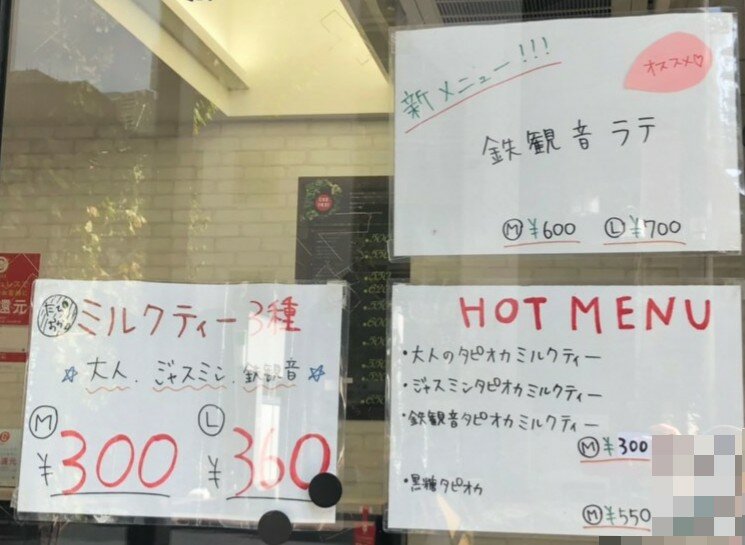 新メニュー!!!
オススメ♡
鉄観音ラテ
Ⓜ ¥600 Ⓛ ¥700
ミルクティー 3種
☆大人.ジャスミン.鉄観音☆
Ⓜ ¥300
Ⓛ ¥360
HOT MENU
・大人のタピオカミルクティー
・ジャスミンタピオカミルクティー
・鉄観音タピオカミルクティー
Ⓜ ¥300
・黒糖タピオカ
Ⓜ ¥550
還元